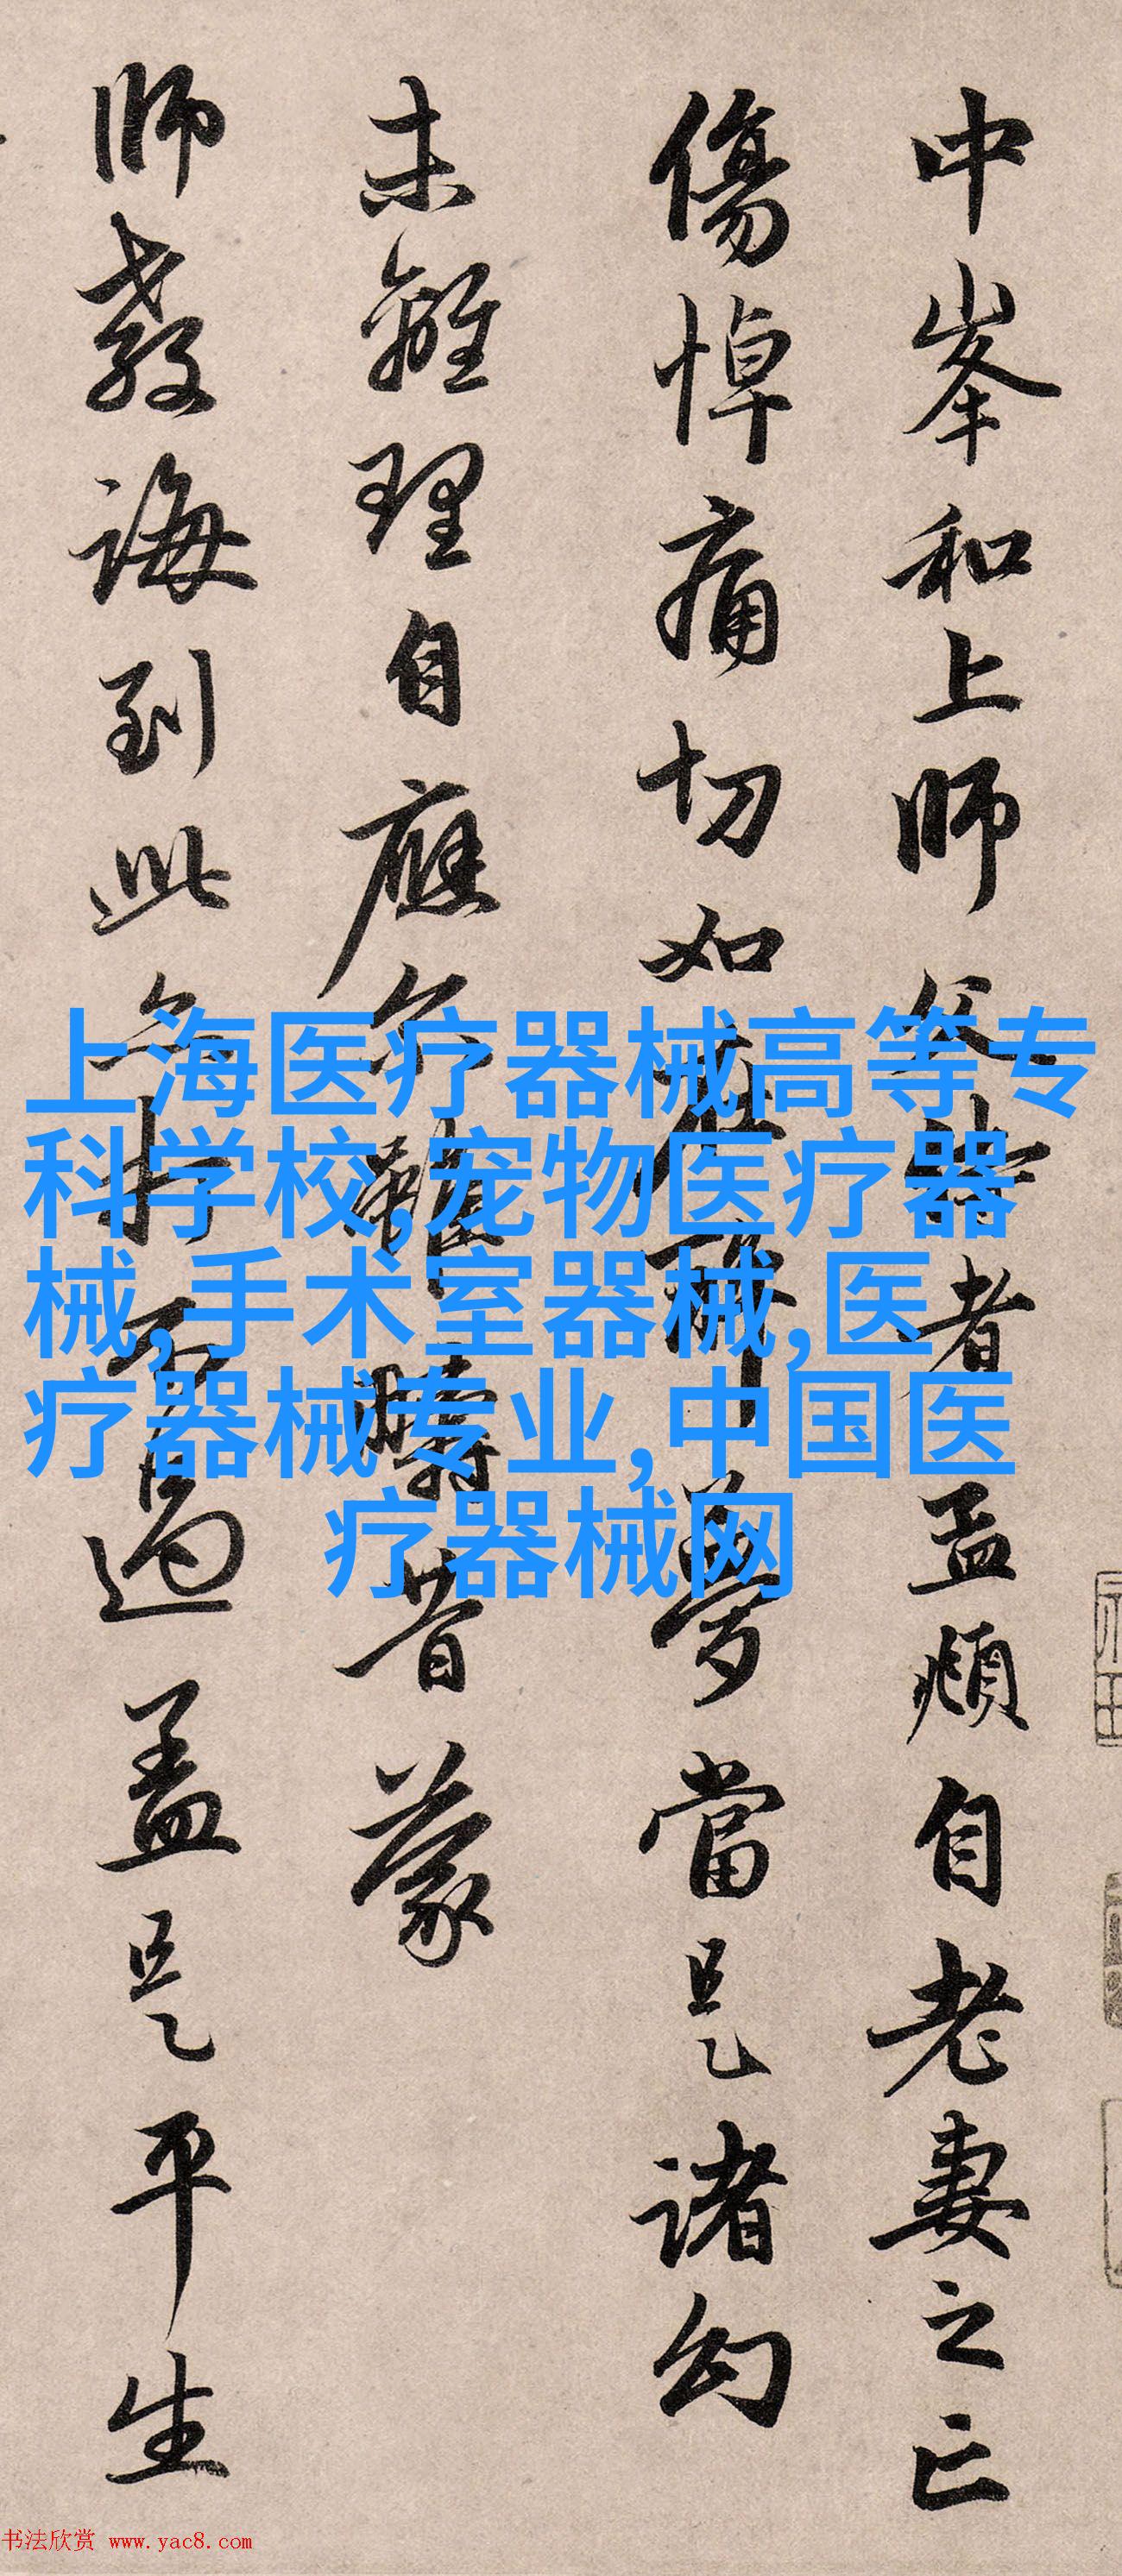 中峯和上師父侍者孟頫自老妻之亡
傷悼痛切如在醉夢當是諸幻
未離理自應尒雖疇昔蒙
師教誨到此亦打不過蓋是平生
上海医疗器械高等专
科学校,宠物医疗器
械,手术室器械,医
疗器械专业,中国医
疗器械网
书法欣赏 www.yac8.com